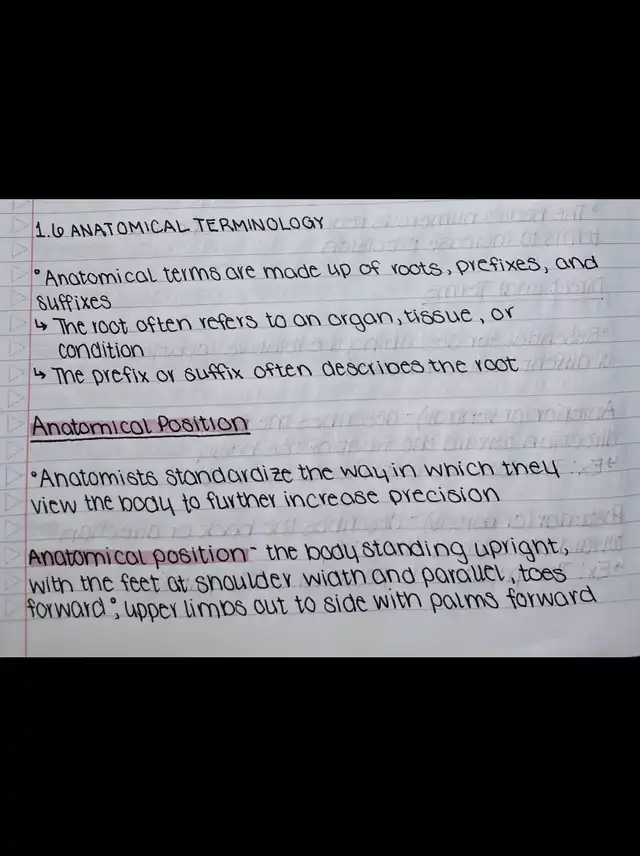 1.6 ANATOMICAL TERMINOLOGY
°Anatomical terms are made up of roots, prefixes, and
suffixes
↳ The root often refers to an organ, tissue, or
condition
↳ The prefix or suffix often describes the root
Anatomical Position
°Anatomists standardize the way in which they
view the body to further increase precision
Anatomical position- the body standing upright,
with the feet at shoulder width and parallel, toes
forward; upper limbs out to side with palms forward